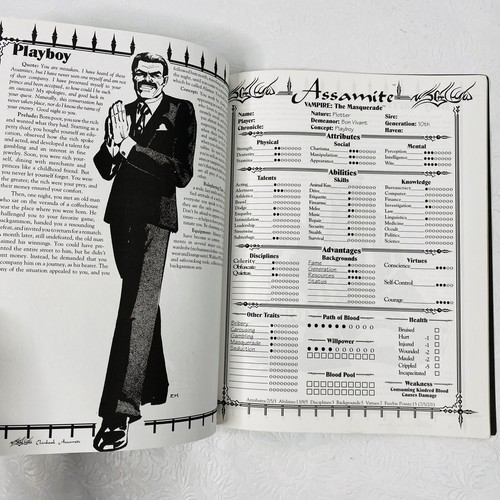 Playboy
Quote: You are mistaken. I have heard of these
Assamites, but I have never seen one myself and am not
of their company. I have presented myself to your
prince and been accepted, so how could I be such
an outcast? My apologies, and good luck in
your quest. Naturally, this conversation has
never taken place, nor do I know the name of
your enemy. Good night to you.
Prelude: Born poor, you saw the rich
and wanted what they had. Starting as a
petty thief, you bought yourself an edu-
cation, observed how the rich spoke
and acted, and developed a talent for
gambling and an interest in fine
jewelry. Soon, you were rich your-
self, dining with merchants and
princes for a childhood friend. But
you never let yourself forget. You were
the greater; the rich were your prey, and
their money ensured your comfort.
Then, one night, you met an old man
who sat on the veranda of a coffeehouse
near the place where you were born. He
challenged you to your favorite game,
backgammon, handed you a resounding
defeat, and invited you to return for a rematch.
A month later, still undefeated, the old man
claimed his winnings. You could have
the entire street to him, but he didn't
want money. Instead, he demanded that you
accompany him on a journey, as his bearer. The
irony of the situation appealed to you, and you
EM
Clanbook Assamite
Assamite
VAMPIRE: The Masquerade
Name:
Nature: Plotter
Sire:
Player:
Demeanor: Bon Vivant
Generation: 10th
Chronicle:
Concept: Playboy
Haven:
Attributes
Physical
Social
Mental
Strength
Charisma
Perception
Dexterity
Manipulation
Intelligence
Stamina
Appearance
Wits
Abilities
Talents
Skills
Knowledge
Acting
Animal Ken
Bureaucracy
Alertness
Drive
Computer
Athletics
Etiquette
Finance
Brawl
Firearms
Investigation
Dodge
Melee
Law
Empathy
Music
Linguistics
Intimidation
Repair
Medicine
Leadership
Security
Occult
Streetwise
Stealth
Politics
Subterfuge
Survival
Science
Advantages
Disciplines
Backgrounds
Virtues
Celerity
Fame
Conscience
Obfuscate
Generation
Quietus
Resources
Self-Control
Status
Courage
Other Traits
Path of Blood
Health
Bribery
Bruised
Hurt -1
Gambling
Injured -1
Masquerade
Willpower
Wounded -2
Seduction
Mauled -2
Crippled -5
Incapacitated
Blood Pool
Weakness
Consuming Kindred Blood
Causes Damage
Attributes: 7/5/3 Abilities: 13/9/5 Disciplines: 3 Backgrounds: 5 Virtues: 7 Freebie Points: 15 (7/5/2/1)